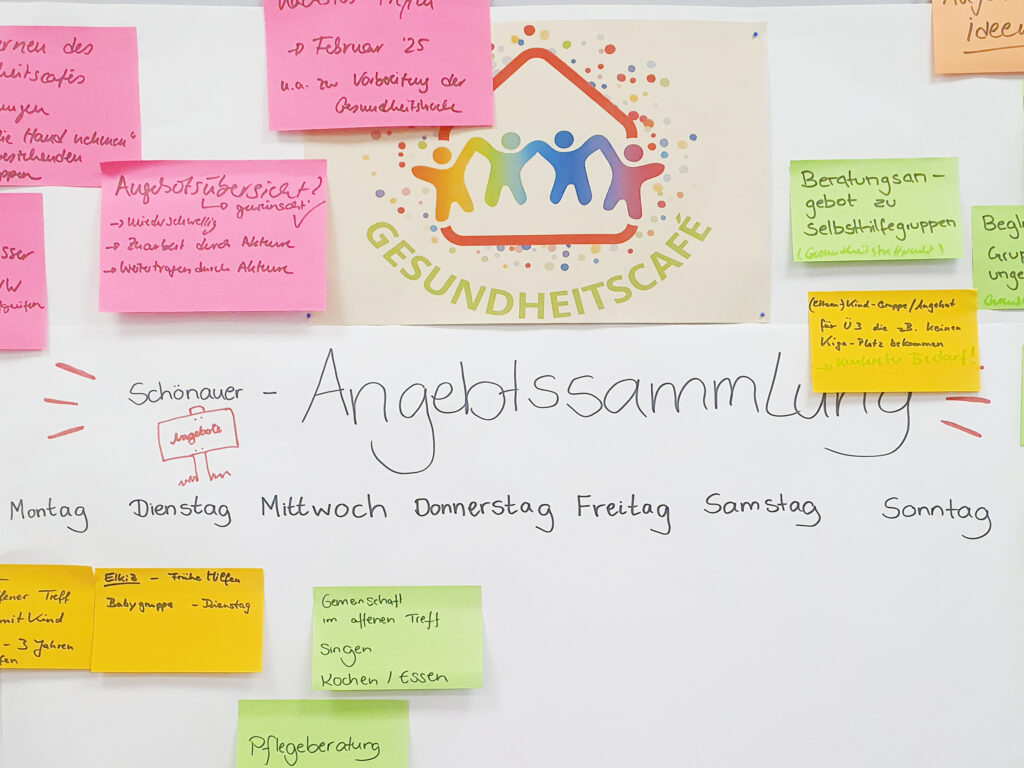 nächstes Treffen
→ Februar '25
u.a. zur Vorbereitung der
Gesundheitswoche
ideen
ernen des
heitscafés
ungen
die Hand nehmen"
bestehenden
ppen
Angebotsübersicht?
gewünscht!
→ Niederschwellig
→ Zuarbeit durch Akteure
→ Weitertragen durch Akteure
sser
/W
greifen
GESUNDHEITSCAFÉ
Beratungsan-
gebot zu
Selbsthilfegruppen
Begl
Grup
unge
(Eltern) Kind-Gruppe/Angebot
für Ü3 die zB. keinen
Kiga-Platz bekommen
→ Konkreter Bedarf!
Schönauer - Angebtssammlung
Angebote
Montag Dienstag Mittwoch Donnerstag Freitag Samstag Sonntag
fener Treff
mit Kind
- 3 Jahren
fen
Elkiz - Frühe Hilfen
Babygruppe - Dienstag
Gemenschaft
im offenen Treff
Singen
Kochen / Essen
Pflegeberatung